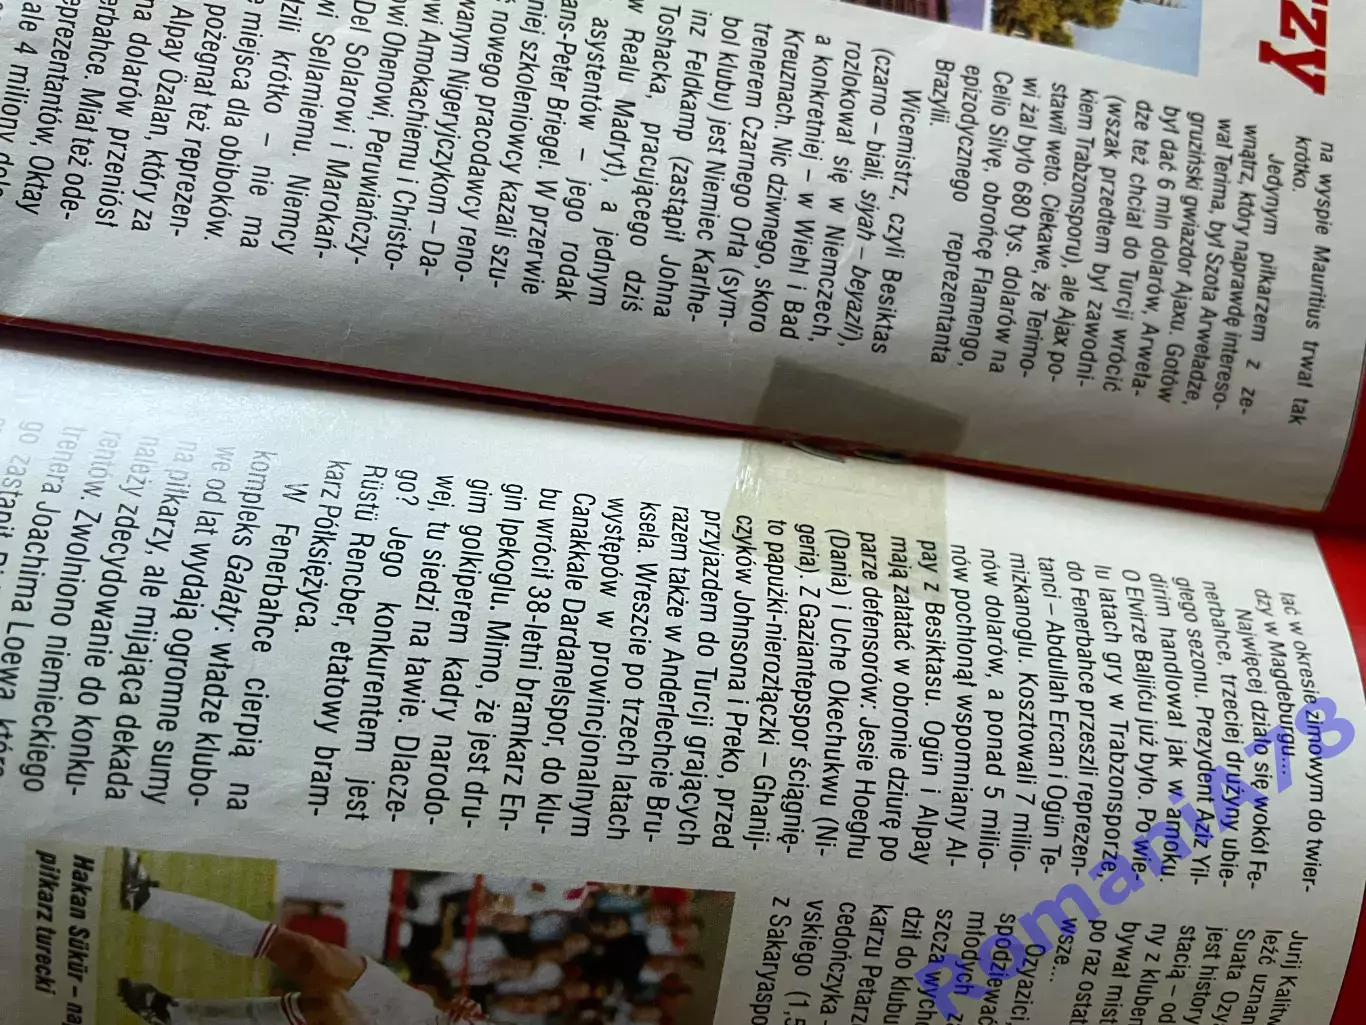 zzy
na wyspie Mauritius trwał tak
krótko.
Jedynym piłkarzem z ze-
wnątrz, który naprawdę intereso-
wał Terima, był Szota Arweładze,
gruziński gwiazdor Ajaxu. Gotów
był dać 6 mln dolarów, Arweła-
dze też chciał do Turcji wrócić
(wszak przedtem był zawodni-
kiem Trabzonsporu), ale Ajax po-
stawił weto. Ciekawe, że Terimo-
wi żal było 680 tys. dolarów na
Celio Silvę, obrońcę Flamengo,
epizodycznego reprezentanta
Brazylii.
Wicemistrz, czyli Besiktas
(czarno – biali, sijah – beyazli),
rozlokował się w Niemczech,
a konkretniej – w Wiehl i Bad
Kreuznach. Nic dziwnego, skoro
trenerem Czarnego Orła (sym-
bol klubu) jest Niemiec Karlhe-
inz Feldkamp (zastąpił Johna
Toshacka, pracującego dziś
w Realu Madryt), a jednym
asystentów – jego rodak
ans-Peter Briegel. W przerwie
niej szkoleniowcy kazali szu-
nowego pracodawcy reno-
wanym Nigeryjczykom – Da-
owi Amokachiemu i Christo-
owi Ohenowi, Peruwiańczy-
Del Solarowi i Marokań-
wi Sellamiemu. Niemcy
dzili krótko – nie ma
miejsca dla obiboków.
pożegnał też reprezen-
Alpay Özalan, który za
na dolarów przeniósł
erbahce. Miał też ode-
eprezentantów, Oktay
ale 4 miliony
lać w okresie zimowym do twier-
dzy w Magdeburgu...
Najwięcej działo się wokół Fe-
nerbahce, trzeciej drużyny ubie-
głego sezonu. Prezydent Aziz Yil-
dirim handlował jak w amoku.
O Elvirze Baljiću już było. Po wie-
lu latach gry w Trabzonsporze
do Fenerbahce przeszli reprezen-
tanci – Abdullah Ercan i Ogün Te-
mizkanoglu. Kosztowali 7 milio-
nów dolarów, a ponad 5 milio-
nów pochłonął wspomniany Al-
pay z Besiktasu. Ogün i Alpay
mają załatać w obronie dziurę po
parze defensorów: Jesie Hoeghu
(Dania) i Uche Okechukwu (Ni-
geria). Z Gaziantepspor ściągnię-
to papużki-nierozłączki – Ghanij-
czyków Johnsona i Preko, przed
przyjazdem do Turcji grających
razem także w Anderlechcie Bru-
ksela. Wreszcie po trzech latach
występów w prowincjonalnym
Canakkale Dardanelspor, do klu-
bu wrócił 38-letni bramkarz En-
gin Ipekoglu. Mimo, że jest dru-
gim golkiperem kadry narodo-
wej, tu siedzi na ławie. Dlacze-
go? Jego konkurentem jest
Rüstü Rencber, etatowy bram-
karz Półksiężyca.
W Fenerbahce cierpią na
kompleks Galaty: władze klubo-
we od lat wydają ogromne sumy
na piłkarzy, ale mijająca dekada
należy zdecydowanie do konku-
rentów. Zwolniono niemieckiego
trenera Joachima Loewa, które-
go zastąpił
Jurij Kalitw
leźć uznan
Suata Ozy
jest history
stacją – od
ny z kluben
bywał mist
po raz ostat
wsze...
Ozyazici,
spodziewać
młodych, za
szcza wycho
dził do klubu
karzu Petarz
cedończyka –
vskiego (1,5
z Sakaryaspo
Hakan Sükür – na
piłkarz turecki
Romania78